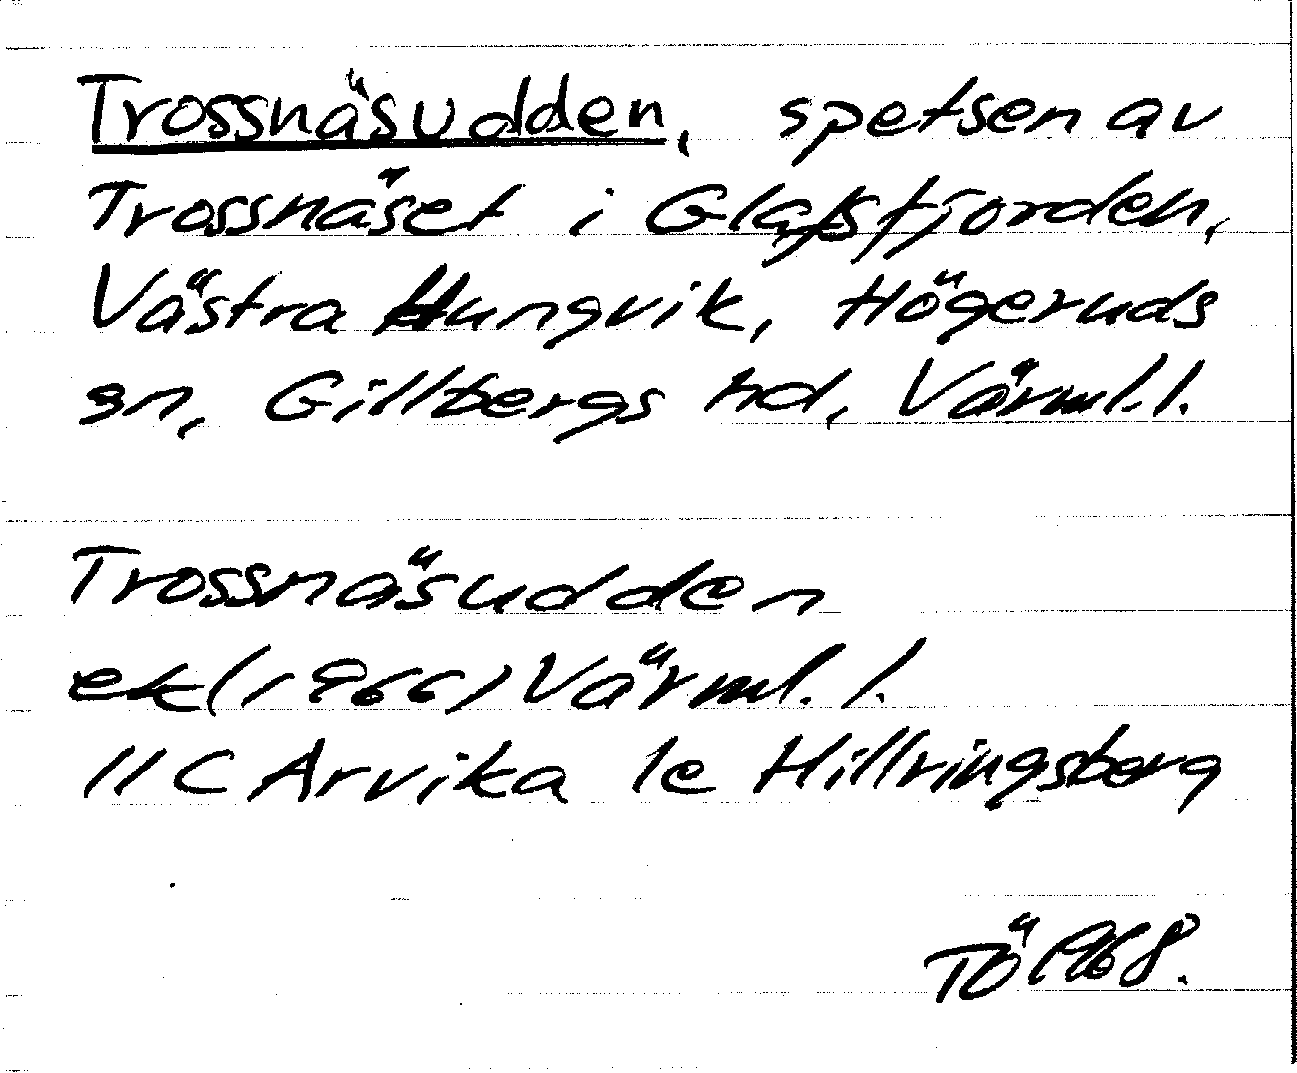 Trossnäsudden, spetsen av
Trossnäset i Glafsfjorden,
Västra Hungvik, Högeruds
sn, Gillbergs hd, Värml.l.
Trossnäsudden
ek(1966) Värml. l.
11C Arvika 1e Hillringsberg
TÖ 1968.